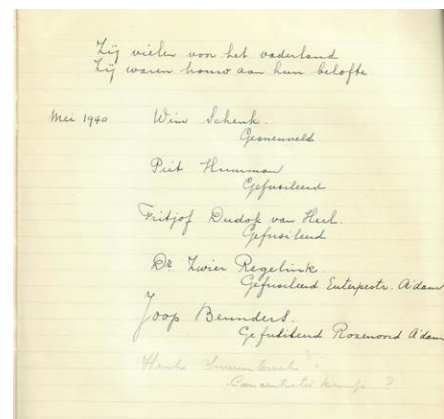 Zij vielen voor het vaderland
Zij waren trouw aan hun belofte
Mei 1940 Wim Schenk.
Gesneuveld.
Piet
Gefusileerd
Fritjof Dudok van Heel.
Gefusileerd
Dr Zwier Regelink.
Gefusileerd Euterpestr. A'dam
Joop
Gefusileerd Rozenoord A'dam
Henk
Concentratie kamp ?